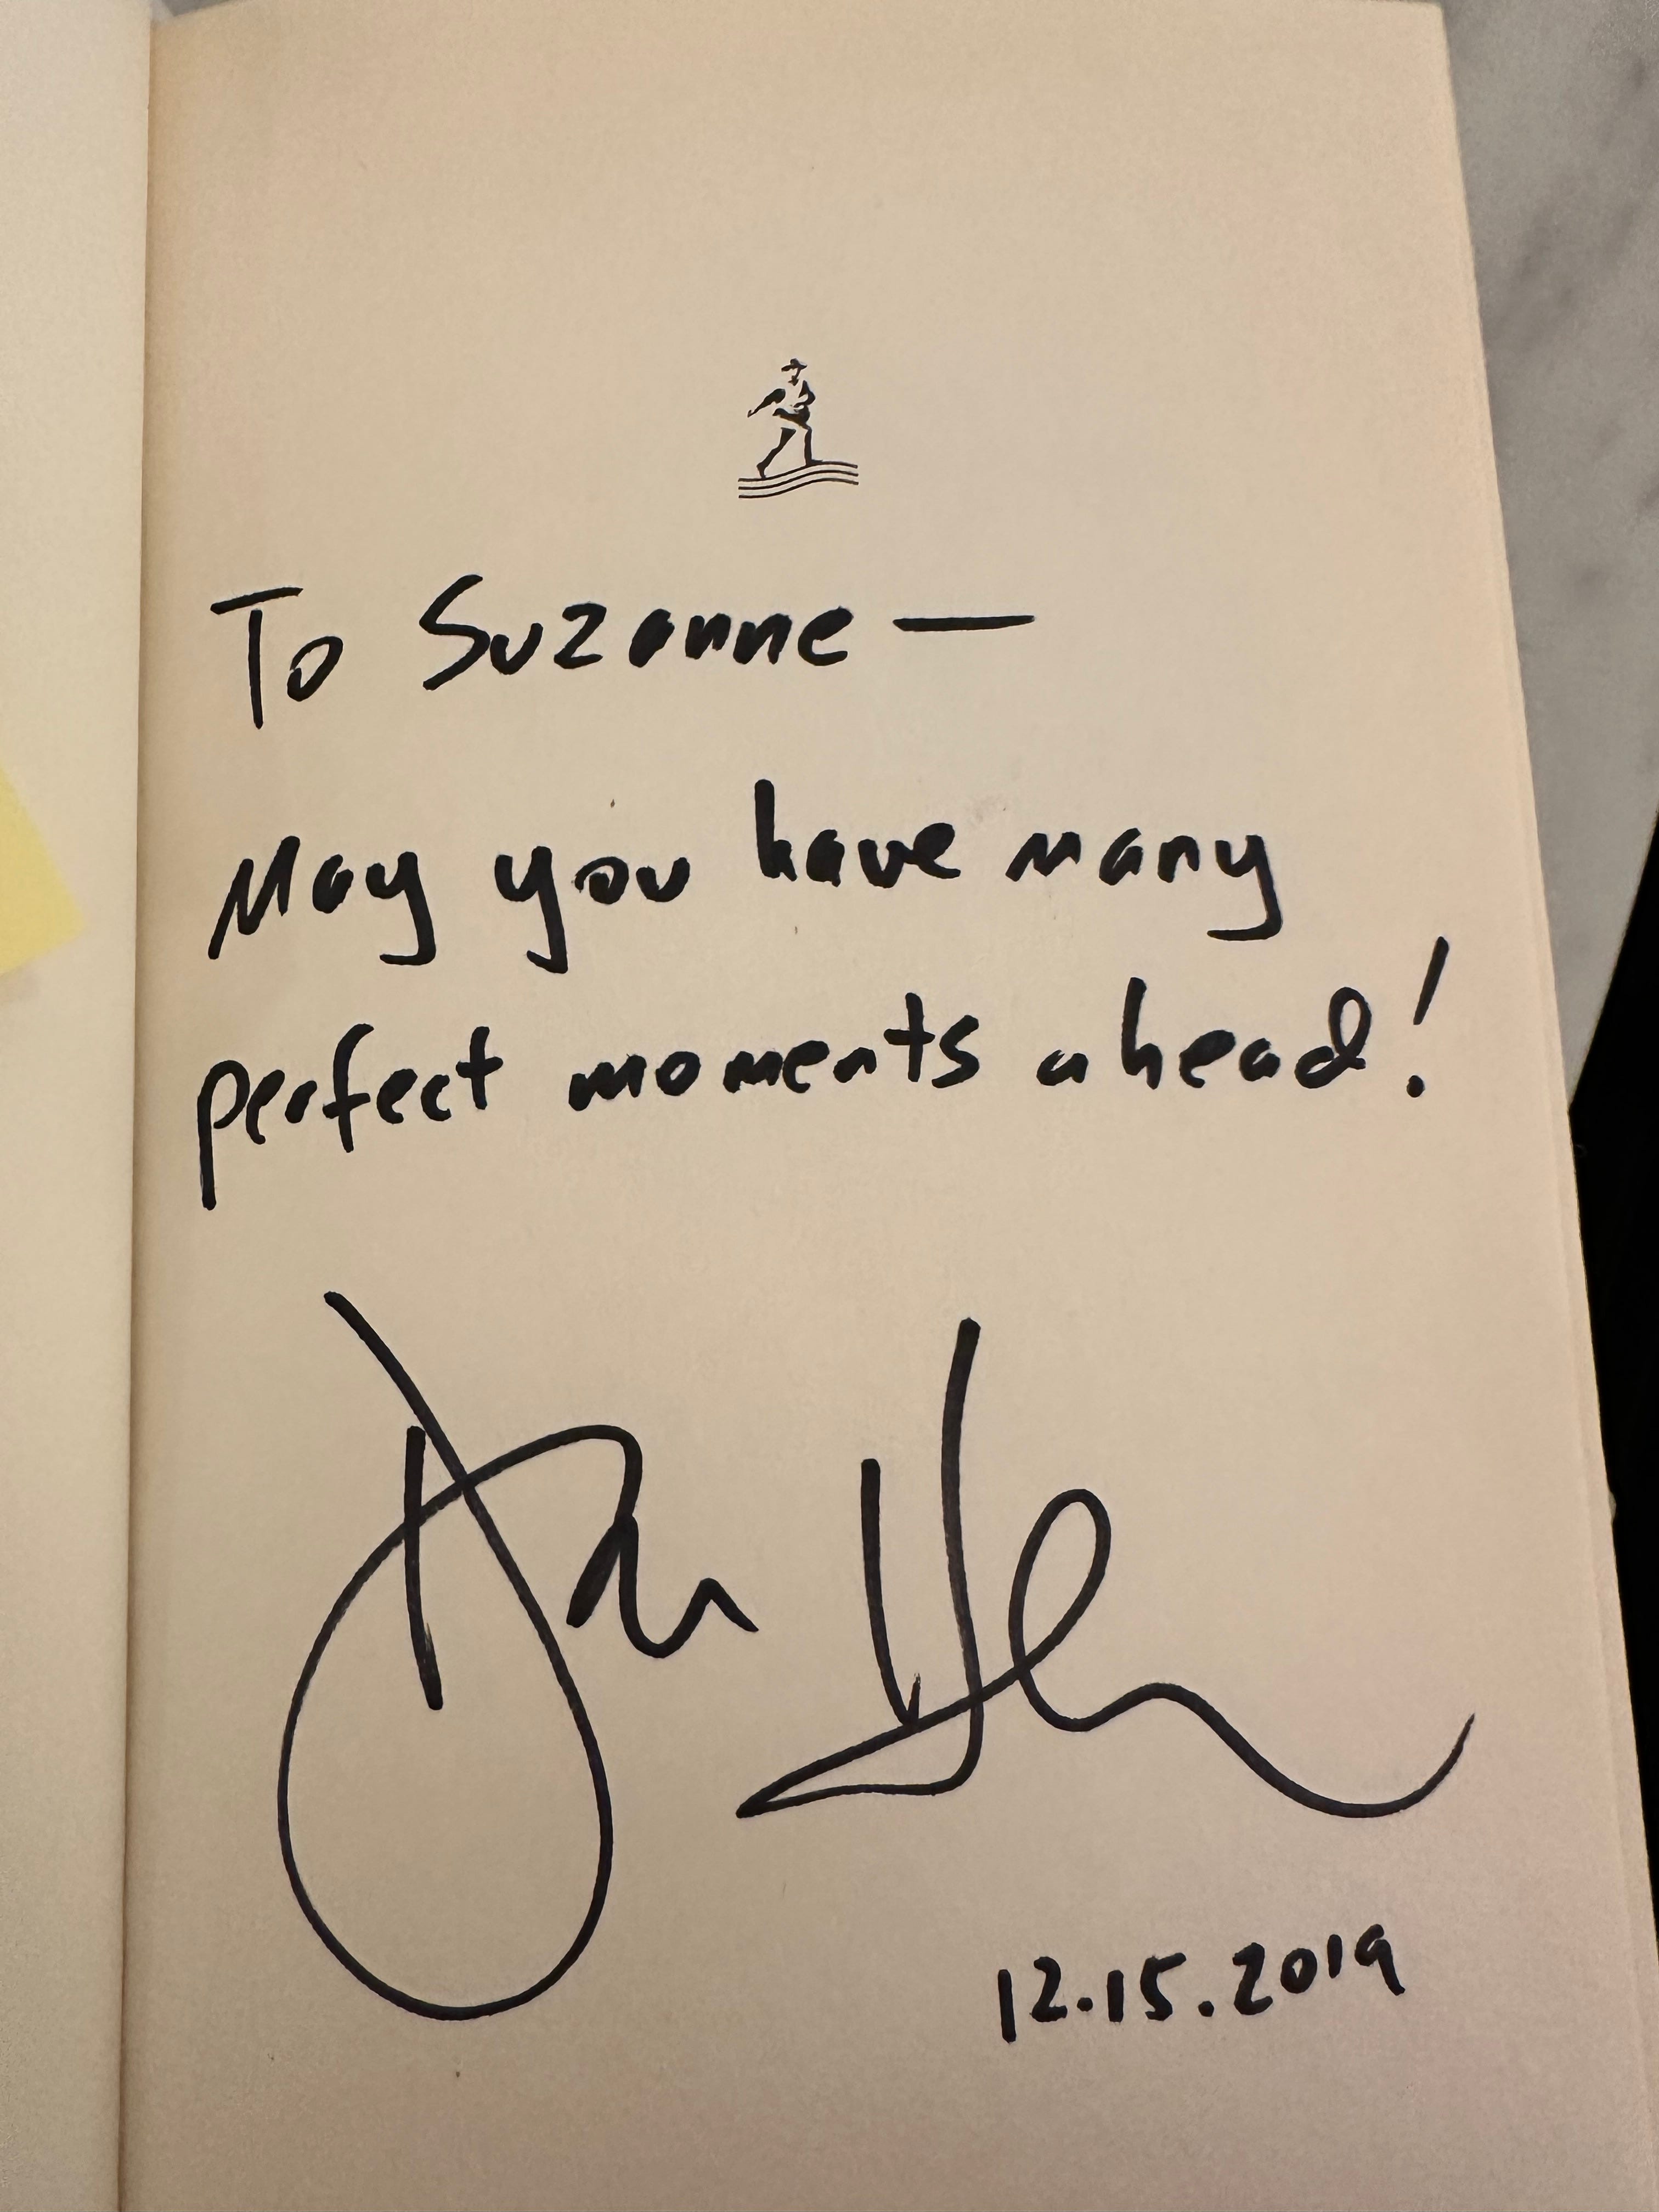 To Suzanne —
May you have many
perfect moments ahead!
12.15.2019